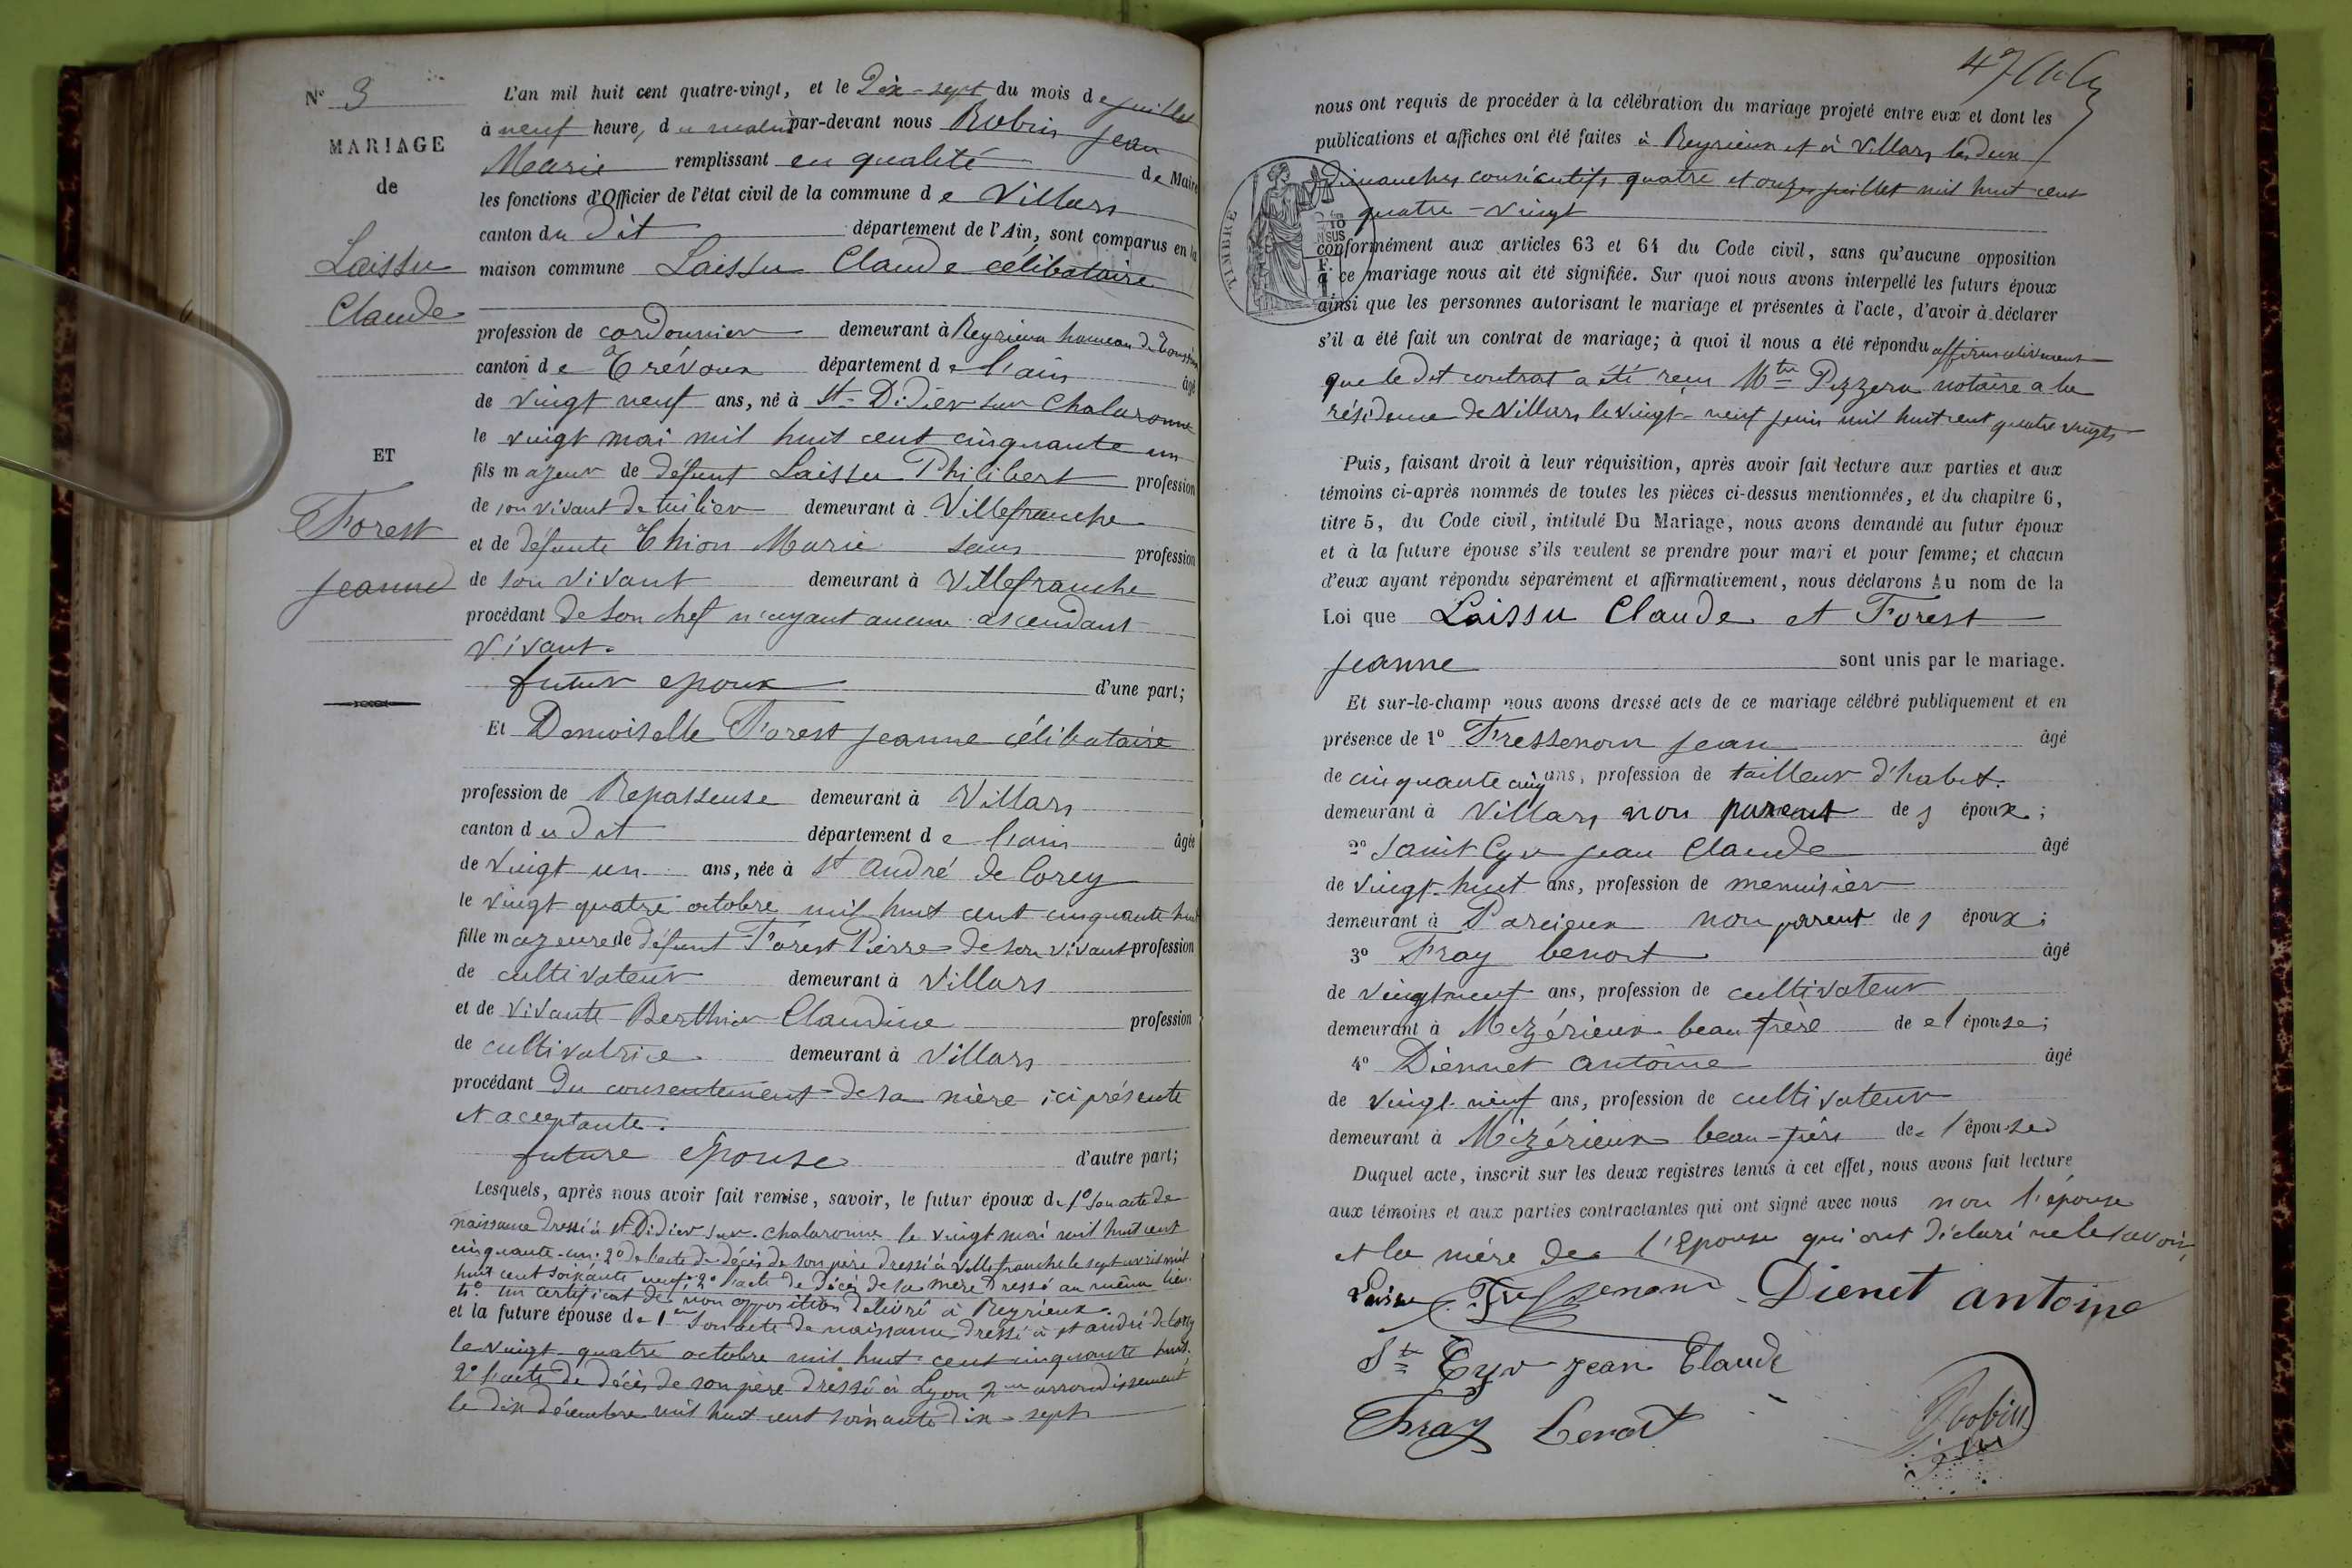 N° 3
MARIAGE
de
Laissu
Claude
ET
Forest
Jeanne
L'an mil huit cent quatre-vingt, et le Dix-sept du mois de juillet
à neuf heure, du matin par-devant nous Robin Jean
Marie remplissant en qualité de Maire
les fonctions d'Officier de l'état civil de la commune de Villars
canton du dit département de l'Ain, sont comparus en la
maison commune Laissu Claude célibataire
profession de cordonnier demeurant à Reyrieux hameau de
canton de Trévoux département de l'ain âgé
de vingt neuf ans, né à St Didier sur Chalaronne
le vingt mai mil huit cent cinquante un
fils majeur de défunt Laissu Philibert profession
de son vivant de tuilier demeurant à Villefranche
et de défunte Thion Marie sans profession
de son vivant demeurant à Villefranche
procédant de son chef n'ayant aucun ascendant
vivant.
futur epoux d'une part;
Et Demoiselle Forest Jeanne célibataire
profession de Repasseuse demeurant à Villars
canton du dit département de l'ain âgée
de vingt un ans, née à St André de Corcy
le vingt quatre octobre mil huit cent cinquante huit
fille majeure de défunt Forest Pierre de son vivant profession
de cultivateur demeurant à Villars
et de vivante Berthier Claudine profession
de cultivatrice demeurant à Villars
procédant du consentement de sa mère ici présente
et aceptante.
future epouse d'autre part;
Lesquels, après nous avoir fait remise, savoir, le futur époux de 1° son acte de
naissance dressé à St Didier sur chalaronne le vingt mai mil huit cent
cinquante-un. 2° de l'acte de décès de son père dressé à Villefranche le sept avril mil
huit cent soixante neuf. 2° l'acte de décès de sa mère dressé au même lieu.
4° un certificat de non opposition délivré à Reyrieux.
et la future épouse de 1° son acte de naissance dressé à st andré de Corcy
le vingt-quatre octobre mil huit cent cinquante huit.
2° l'acte de décès de son père dressé à Lyon 2me arrondissement
le dix décembre mil huit cent soixante dix-sept
47
nous ont requis de procéder à la célébration du mariage projeté entre eux et dont les
publications et affiches ont été faites à Reyrieux et à Villars les deux
dimanches consécutifs quatre et onze juillet mil huit cent
quatre-vingt
TIMBRE
conformément aux articles 63 et 64 du Code civil, sans qu'aucune opposition
à ce mariage nous ait été signifiée. Sur quoi nous avons interpellé les futurs époux
ainsi que les personnes autorisant le mariage et présentes à l'acte, d'avoir à déclarer
s'il a été fait un contrat de mariage; à quoi il nous a été répondu affirmativement
que le dit contrat a été reçu Mtre Pezzera notaire a la
résidence de Villars le vingt-neuf juin mil huit cent quatre vingts
Puis, faisant droit à leur réquisition, après avoir fait lecture aux parties et aux
témoins ci-après nommés de toutes les pièces ci-dessus mentionnées, et du chapitre 6,
titre 5, du Code civil, intitulé Du Mariage, nous avons demandé au futur époux
et à la future épouse s'ils veulent se prendre pour mari et pour femme; et chacun
d'eux ayant répondu séparément et affirmativement, nous déclarons Au nom de la
Loi que Laissu Claude et Forest
Jeanne sont unis par le mariage.
Et sur-le-champ nous avons dressé acte de ce mariage célébré publiquement et en
présence de 1° Fressenon Jean âgé
de cinquante cinq ans, profession de tailleur d'habit.
demeurant à Villars non parent des époux;
2° Saint Cyr Jean Claude âgé
de vingt-huit ans, profession de menuisier
demeurant à Parcieux non parent des époux;
3° Fray benoit âgé
de vingt neuf ans, profession de cultivateur
demeurant à Mizérieux beau frère de el épouse;
4° Diennet antoine âgé
de vingt-neuf ans, profession de cultivateur
demeurant à Mizérieux beau-frère de l'épouse
Duquel acte, inscrit sur les deux registres tenus à cet effet, nous avons fait lecture
aux témoins et aux parties contractantes qui ont signé avec nous non l'épouse
et la mère de l'Epouse qui ont déclaré ne le savoir,
Laissu Fressenon Dienet antoine
St Cyr jean Claude
Fray benoit
Robin